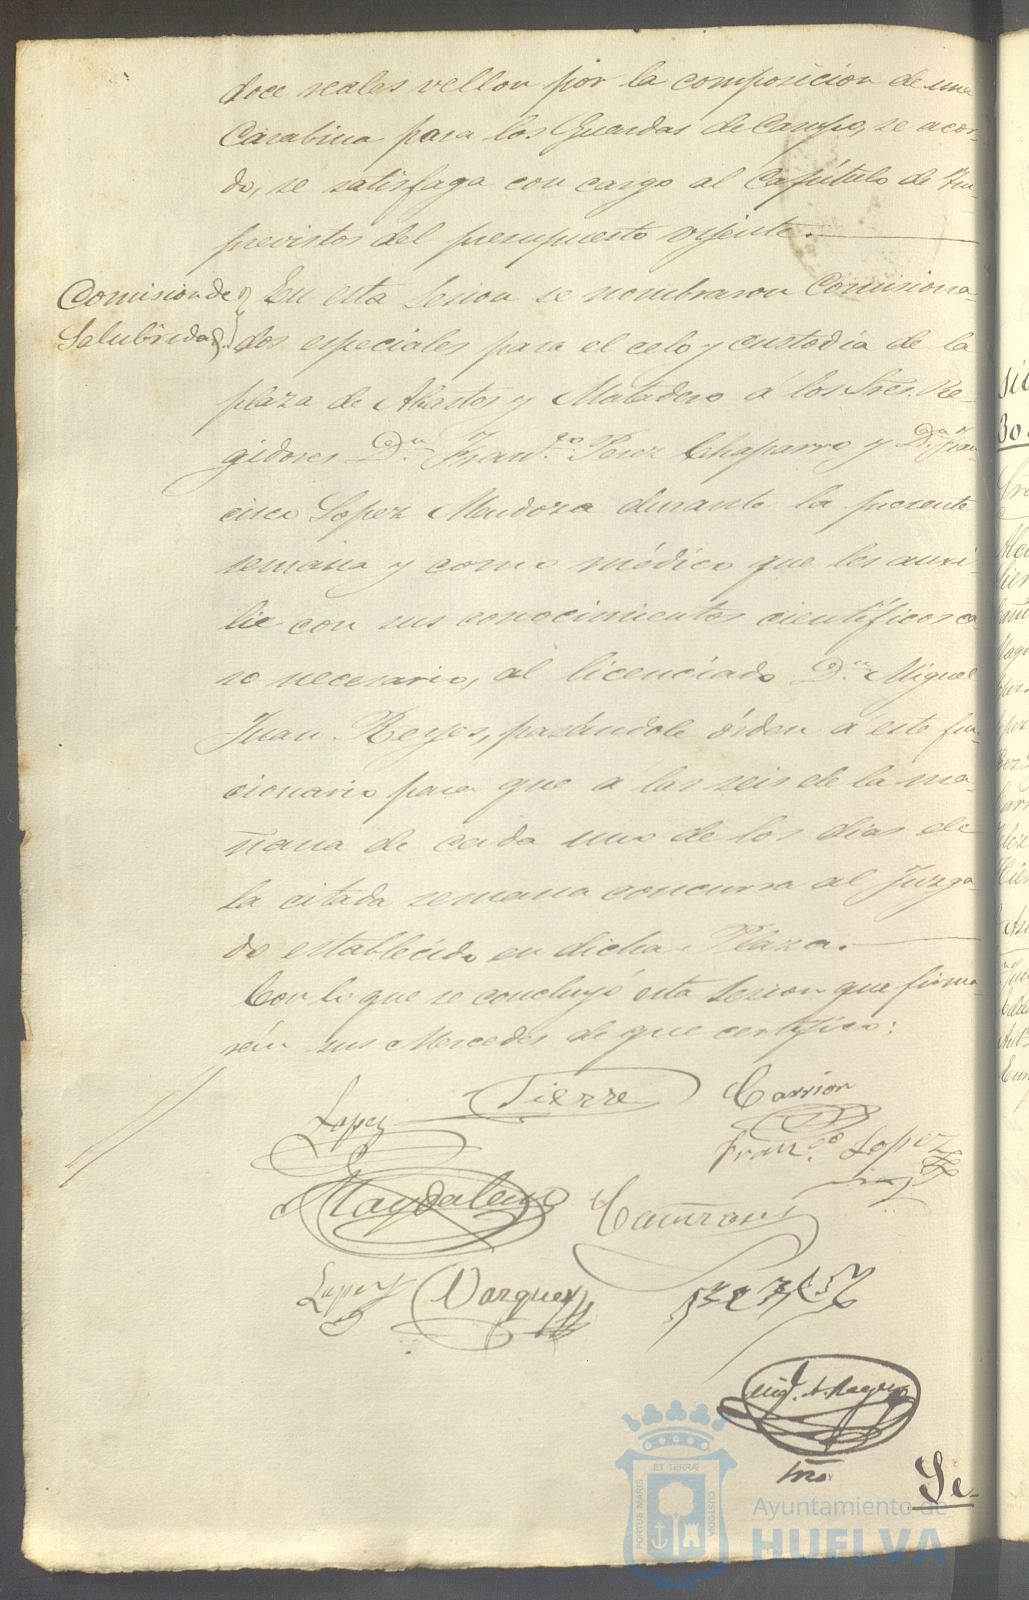 doce reales vellon por la composicion de una
Carabina para los Guardas de Campo, se acor-
dó, se satisfaga con cargo al Capítulo de Im-
previstos del presupuesto vijente.
Comision de
Salubridad.
En esta Sesion se nombraron Comisiona-
dos especiales para el celo y custodia de la
plaza de Abastos y Matadero á los Sres. Re-
gidores Dn. Franco. Perez Chaparro y Dn. Fran-
cisco Lopez Mendoza durante la presente
semana y como médico que les auxi-
lie con sus conocimientos científicos ca
so necesario, al licenciado Dn. Miguel
Juan Reyes, pasándole órden á este fun-
cionario para que á las seis de la ma-
ñana de cada uno de los dias de
la citada semana concurra al Juzga-
do establecido en dicha Plaza.
Con lo que se concluyó esta Sesion que firma
rán sus Mercedes de que certifico:
Lopez Tierra Carrion
Franco. Lopez
Magdaleno
Lopez Vazquez
Srio.
Se-
PORTUS MARIS ET TERRÆ CUSTODIA
Ayuntamiento de
HUELVA